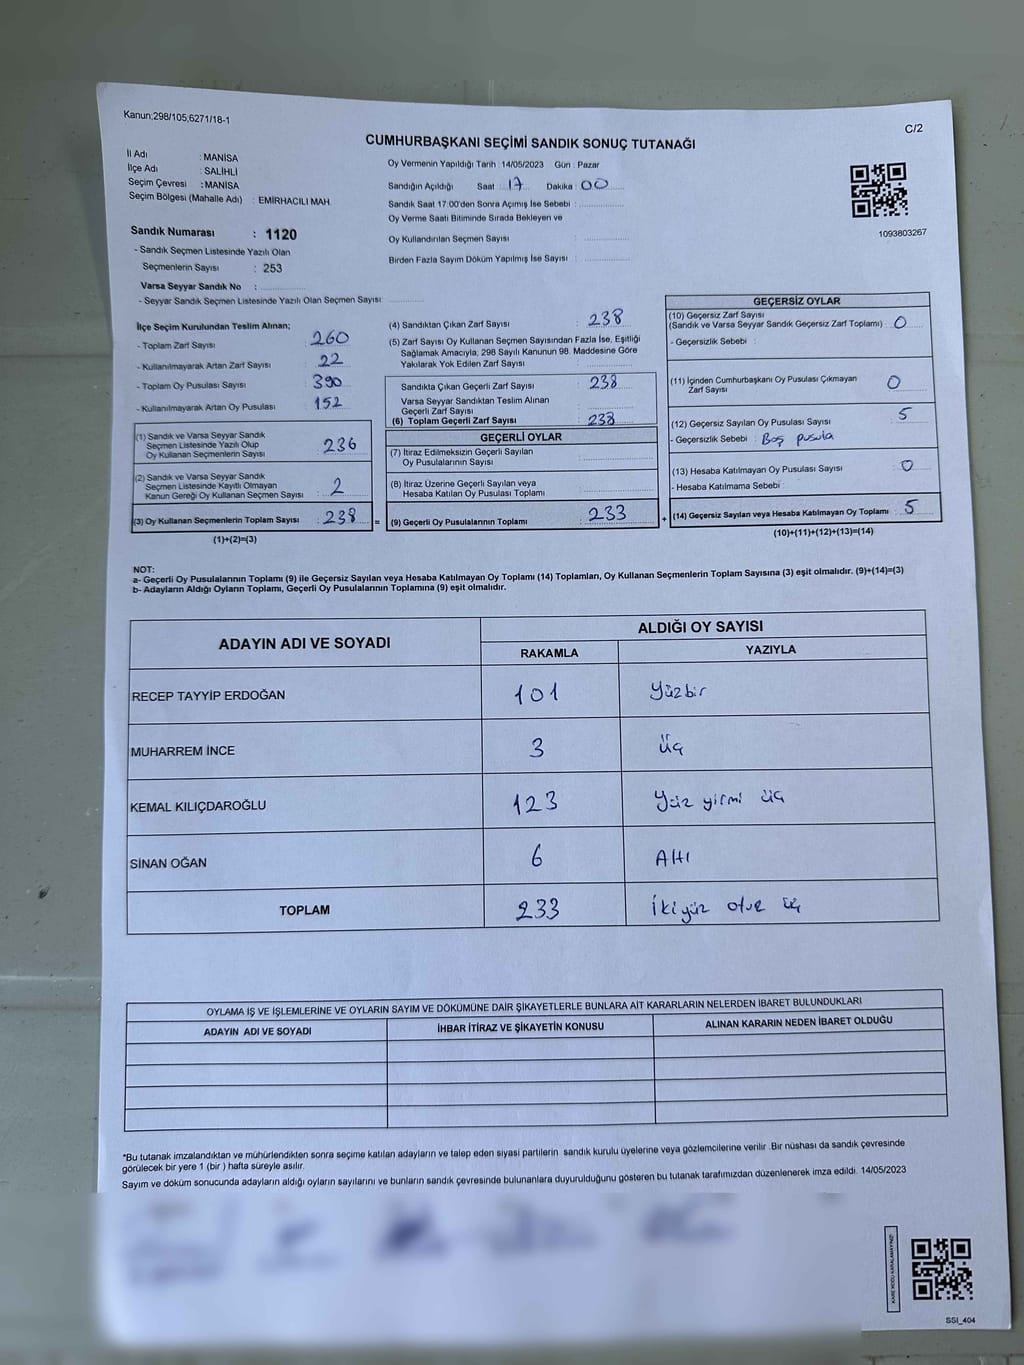 Kanun:298/105,6271/18-1
C/2
CUMHURBAŞKANI SEÇİMİ SANDIK SONUÇ TUTANAĞI
İl Adı : MANİSA
İlçe Adı : SALİHLİ
Seçim Çevresi : MANİSA
Seçim Bölgesi (Mahalle Adı) : EMİRHACILI MAH.
Sandık Numarası : 1120
- Sandık Seçmen Listesinde Yazılı Olan
Seçmenlerin Sayısı : 253
Varsa Seyyar Sandık No :
- Seyyar Sandık Seçmen Listesinde Yazılı Olan Seçmen Sayısı
Oy Vermenin Yapıldığı Tarih : 14/05/2023 Gün : Pazar
Sandığın Açıldığı Saat : 17 Dakika : 00
Sandık Saat 17:00'den Sonra Açımış İse Sebebi :
Oy Verme Saati Bitiminde Sırada Bekleyen ve
Oy Kullandırılan Seçmen Sayısı :
Birden Fazla Sayım Döküm Yapılmış İse Sayısı :
1093803267
İlçe Seçim Kurulundan Teslim Alınan;
- Toplam Zarf Sayısı : 260
- Kullanılmayarak Artan Zarf Sayısı : 22
- Toplam Oy Pusulası Sayısı : 390
- Kullanılmayarak Artan Oy Pusulası : 152
(1) Sandık ve Varsa Seyyar Sandık
Seçmen Listesinde Yazılı Olup
Oy Kullanan Seçmenlerin Sayısı : 236
(2) Sandık ve Varsa Seyyar Sandık
Seçmen Listesinde Kayıtlı Olmayan
Kanun Gereği Oy Kullanan Seçmen Sayısı : 2
(3) Oy Kullanan Seçmenlerin Toplam Sayısı : 238
(1)+(2)=(3)
(4) Sandıktan Çıkan Zarf Sayısı : 238
(5) Zarf Sayısı Oy Kullanan Seçmen Sayısından Fazla İse, Eşitliği
Sağlamak Amacıyla, 298 Sayılı Kanunun 98. Maddesine Göre
Yakılarak Yok Edilen Zarf Sayısı :
Sandıkta Çıkan Geçerli Zarf Sayısı : 238
Varsa Seyyar Sandıktan Teslim Alınan
Geçerli Zarf Sayısı :
(6) Toplam Geçerli Zarf Sayısı : 238
GEÇERLİ OYLAR
(7) İtiraz Edilmeksizin Geçerli Sayılan
Oy Pusulalarının Sayısı :
(8) İtiraz Üzerine Geçerli Sayılan veya
Hesaba Katılan Oy Pusulası Toplamı :
= (9) Geçerli Oy Pusulalarının Toplamı : 233
GEÇERSİZ OYLAR
(10) Geçersiz Zarf Sayısı
(Sandık ve Varsa Seyyar Sandık Geçersiz Zarf Toplamı) : 0
- Geçersizlik Sebebi :
(11) İçinden Cumhurbaşkanı Oy Pusulası Çıkmayan
Zarf Sayısı : 0
(12) Geçersiz Sayılan Oy Pusulası Sayısı : 5
- Geçersizlik Sebebi : Boş pusula
(13) Hesaba Katılmayan Oy Pusulası Sayısı : 0
- Hesaba Katılmama Sebebi :
+ (14) Geçersiz Sayılan veya Hesaba Katılmayan Oy Toplamı : 5
(10)+(11)+(12)+(13)=(14)
NOT:
a- Geçerli Oy Pusulalarının Toplamı (9) ile Geçersiz Sayılan veya Hesaba Katılmayan Oy Toplamı (14) Toplamları, Oy Kullanan Seçmenlerin Toplam Sayısına (3) eşit olmalıdır. (9)+(14)=(3)
b- Adayların Aldığı Oyların Toplamı, Geçerli Oy Pusulalarının Toplamına (9) eşit olmalıdır.
ADAYIN ADI VE SOYADI
ALDIĞI OY SAYISI
RAKAMLA YAZIYLA
RECEP TAYYİP ERDOĞAN 101 Yüzbir
MUHARREM İNCE 3 üç
KEMAL KILIÇDAROĞLU 123 Yüz yirmi üç
SİNAN OĞAN 6 Altı
TOPLAM 233 İkiyüz otuz üç
OYLAMA İŞ VE İŞLEMLERİNE VE OYLARIN SAYIM VE DÖKÜMÜNE DAİR ŞİKAYETLERLE BUNLARA AİT KARARLARIN NELERDEN İBARET BULUNDUKLARI
ADAYIN ADI VE SOYADI İHBAR İTİRAZ VE ŞİKAYETİN KONUSU ALINAN KARARIN NEDEN İBARET OLDUĞU
*Bu tutanak imzalandıktan ve mühürlendikten sonra seçime katılan adayların ve talep eden siyasi partilerin sandık kurulu üyelerine veya gözlemcilerine verilir .Bir nüshası da sandık çevresinde
görülecek bir yere 1 (bir ) hafta süreyle asılır.
Sayım ve döküm sonucunda adayların aldığı oyların sayılarını ve bunların sandık çevresinde bulunanlara duyurulduğunu gösteren bu tutanak tarafımızdan düzenlenerek imza edildi. 14/05/2023
KARE KODU KARALAMAYINIZ!
SSI_404